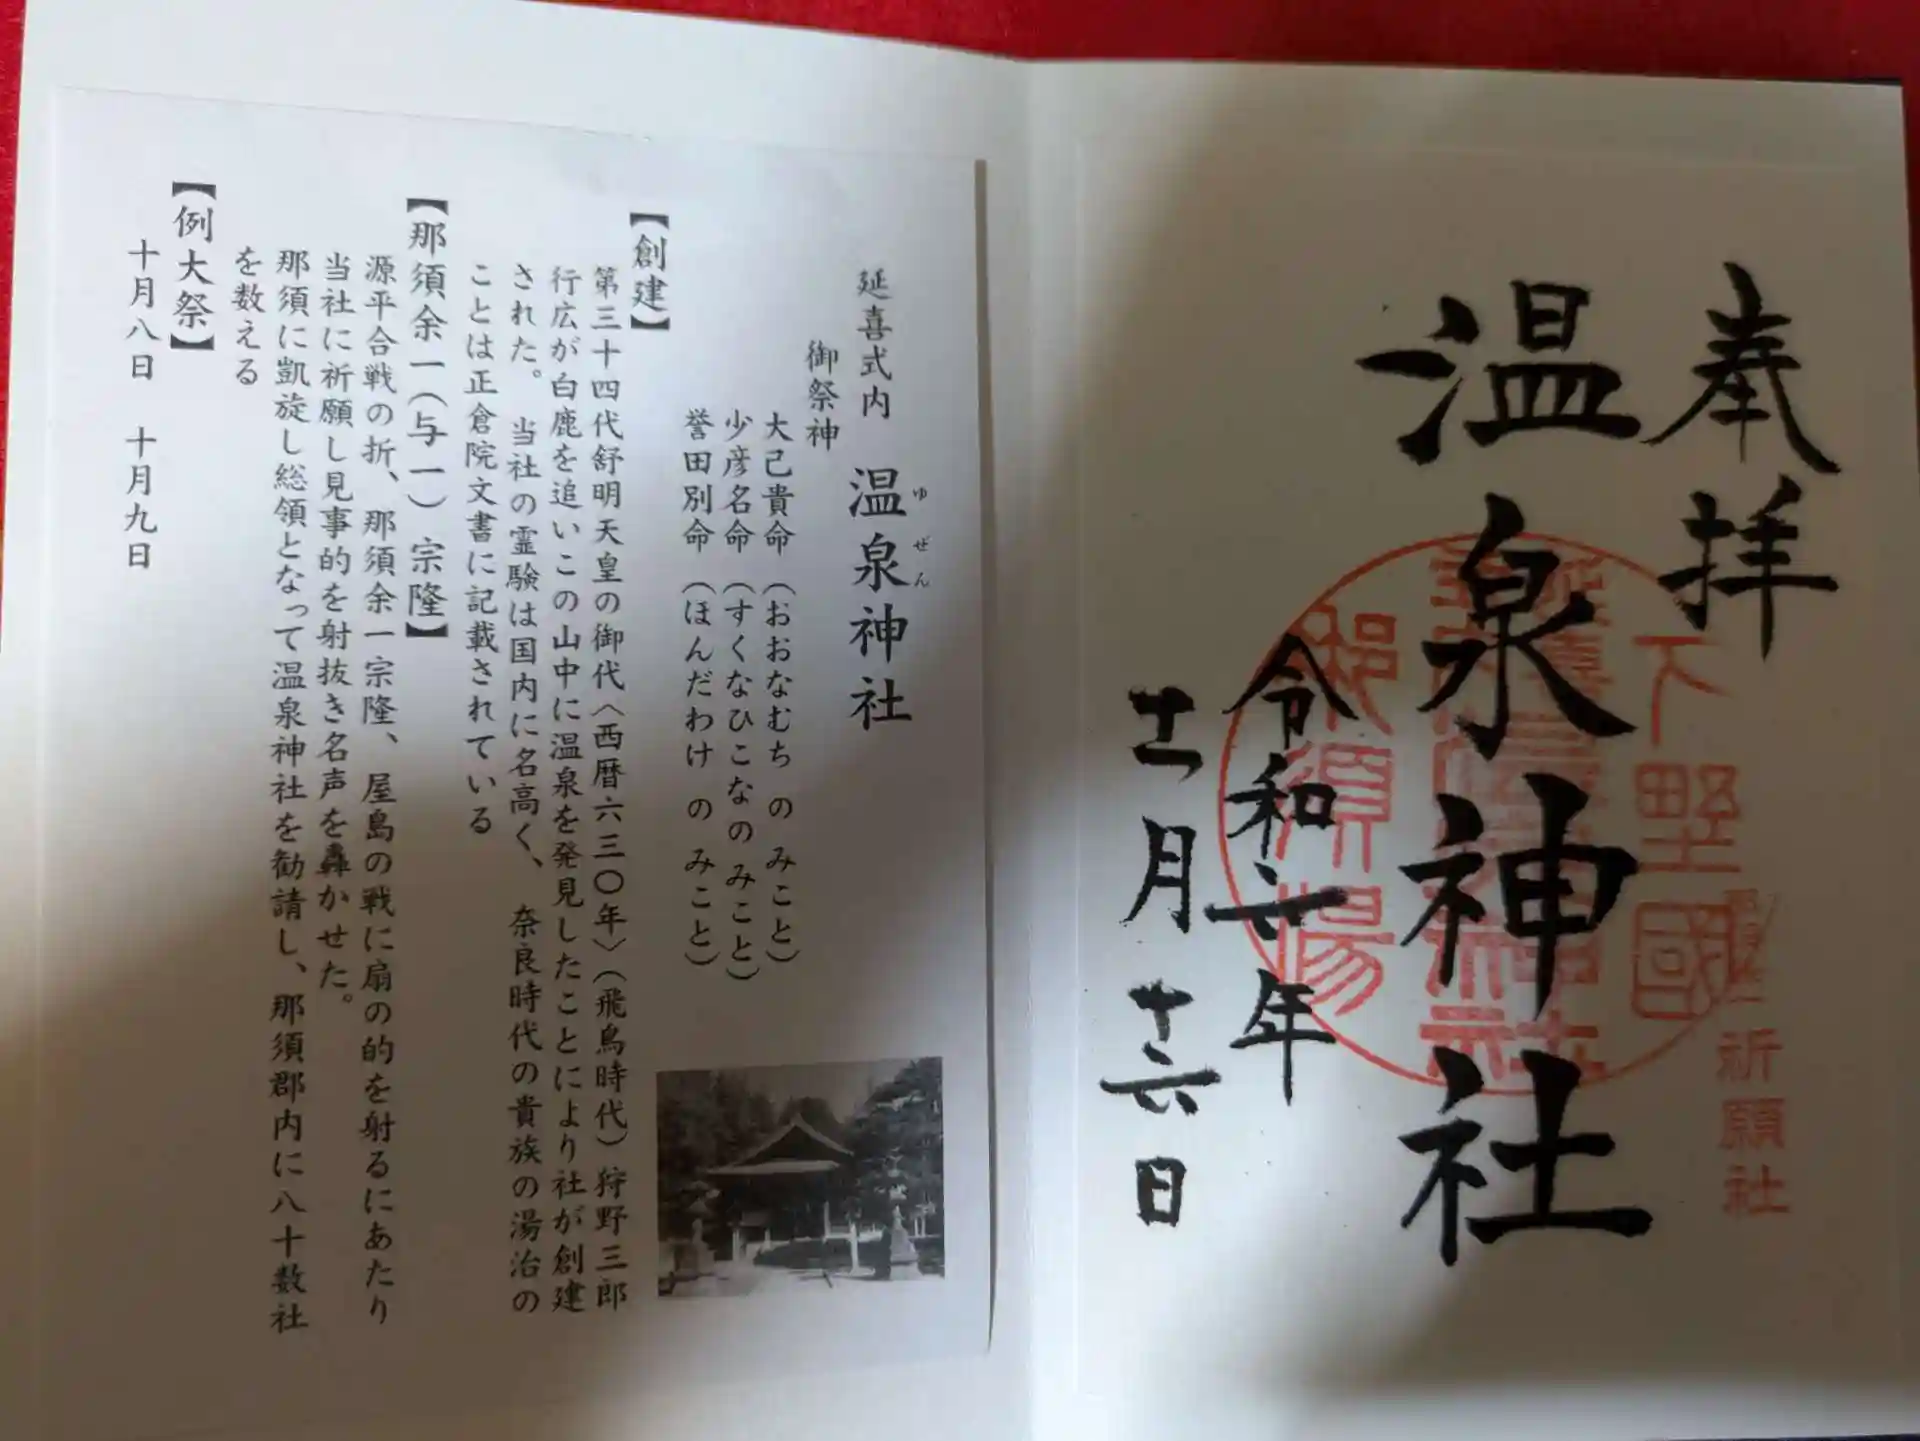 奉拝
温泉神社
令和六年
十一月十六日
下野國
延喜式内
温泉神社
那須湯
祈願社
延喜式内 温泉神社
ゆぜん
御祭神
大己貴命(おおなむち の みこと)
少彦名命(すくなひこなの みこと)
誉田別命(ほんだわけ の みこと)
【創建】
第三十四代舒明天皇の御代〈西暦六三〇年〉(飛鳥時代)狩野三郎
行広が白鹿を追いこの山中に温泉を発見したことにより社が創建
された。 当社の霊験は国内に名高く、 奈良時代の貴族の湯治の
ことは正倉院文書に記載されている
【那須余一(与一) 宗隆】
源平合戦の折、那須余一宗隆、屋島の戦に扇の的を射るにあたり
当社に祈願し見事的を射抜き名声を轟かせた。
那須に凱旋し総領となって温泉神社を勧請し、那須郡内に八十数社
を数える
【例大祭】
十月八日 十月九日